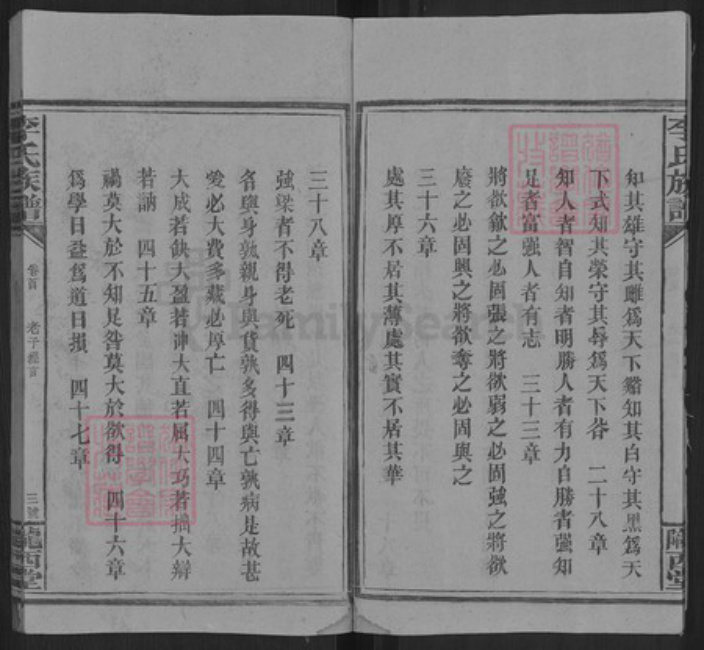 李氏族譜
隴西堂
知其雄守其雌爲天下谿知其白守其黑爲天
下式知其榮守其辱爲天下谷　二十八章
知人者智自知者明勝人者有力自勝者强知
足者富强人者有志　三十三章
將欲歙之必固張之將欲弱之必固强之將欲
廢之必固興之將欲奪之必固與之
三十六章
處其厚不居其薄處其實不居其華
三十八章
强梁者不得老死　四十三章
名與身孰親身與貨孰多得與亡孰病是故甚
愛必大費多藏必厚亡　四十四章
大成若缺大盈若沖大直若屈大巧若拙大辯
若訥　四十五章
禍莫大於不知足咎莫大於欲得　四十六章
爲學日益爲道日損　四十七章
李氏族譜
卷首
老子經言
三號
隴西堂
FamilySearch